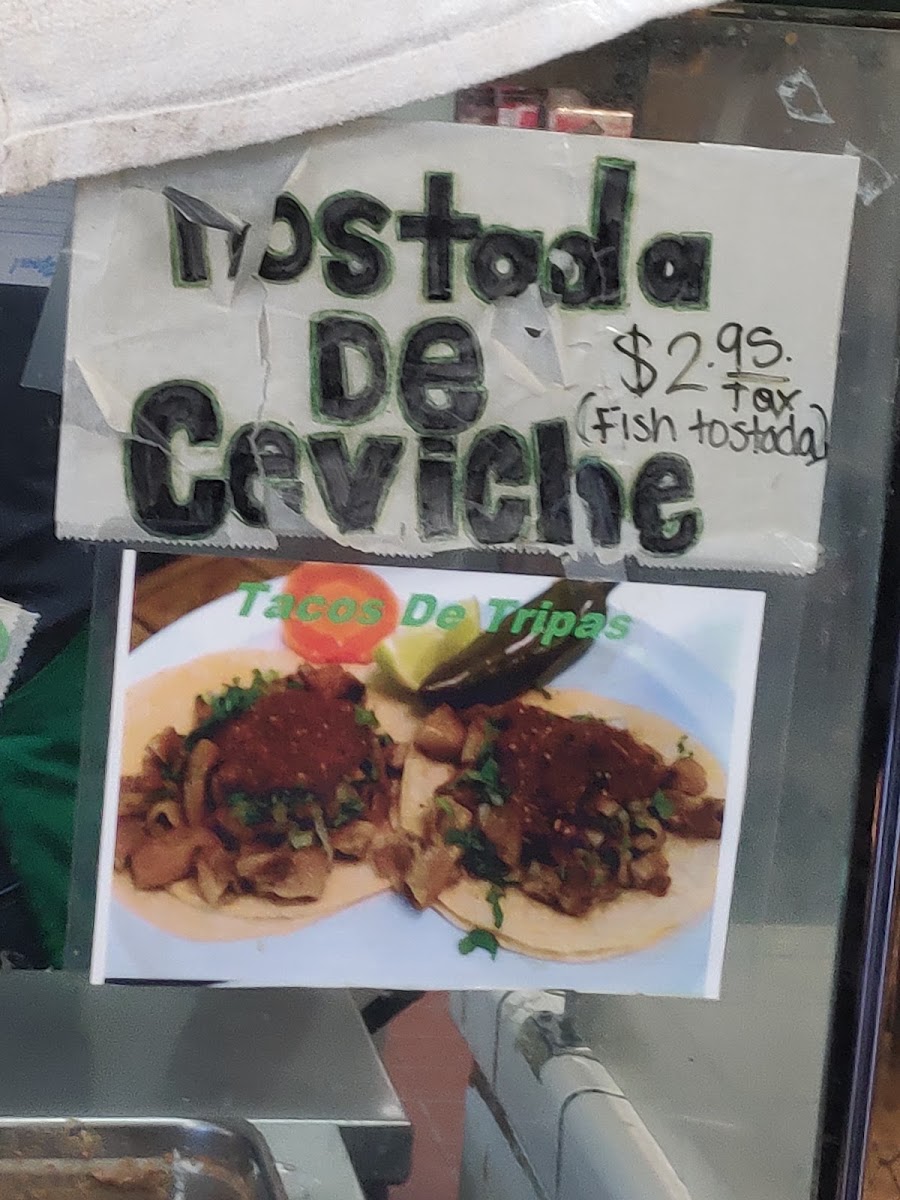 Tostada
De
Ceviche
$2.95.
Tax
(Fish tostada)
Tacos De Tripas